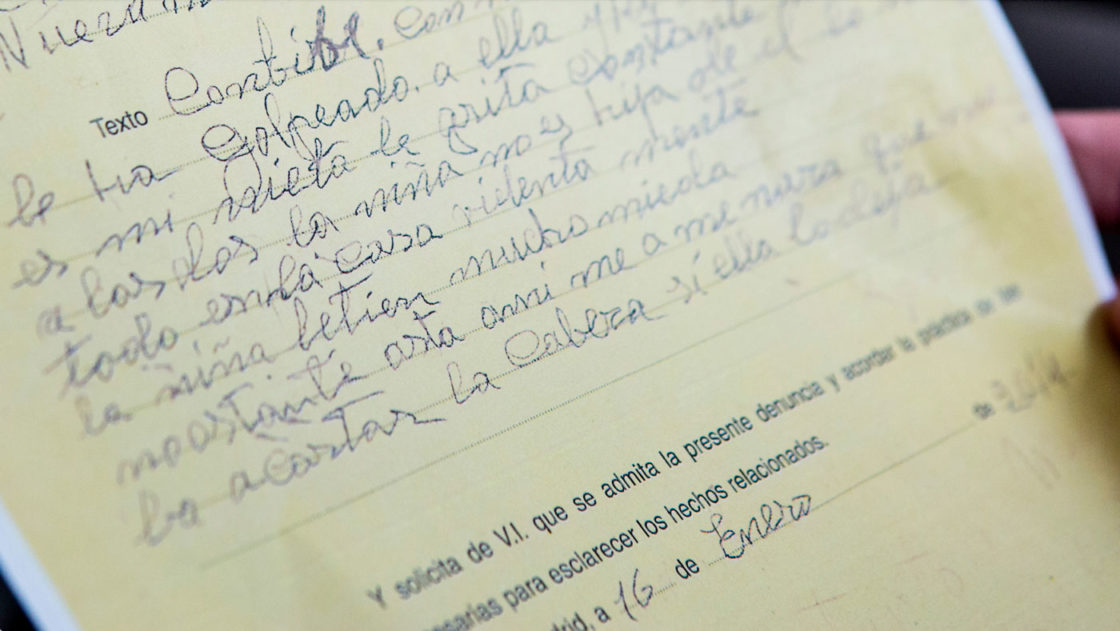 Nuera
Texto Contible. Con
le ha Golpeado. a ella y
es mi nieta le grita constante
a las dos la niña no es hija de el
todo en la casa violenta mente
la niña le tien mucho miedo
noostante asta ami me a me nura que
ba acortar la Cabeza si ella lo deja
Y solicita de V.I. que se admita la presente denuncia y acordar la práctica de las
esarias para esclarecer los hechos relacionados.
drid, a 16 de Enero de 2014